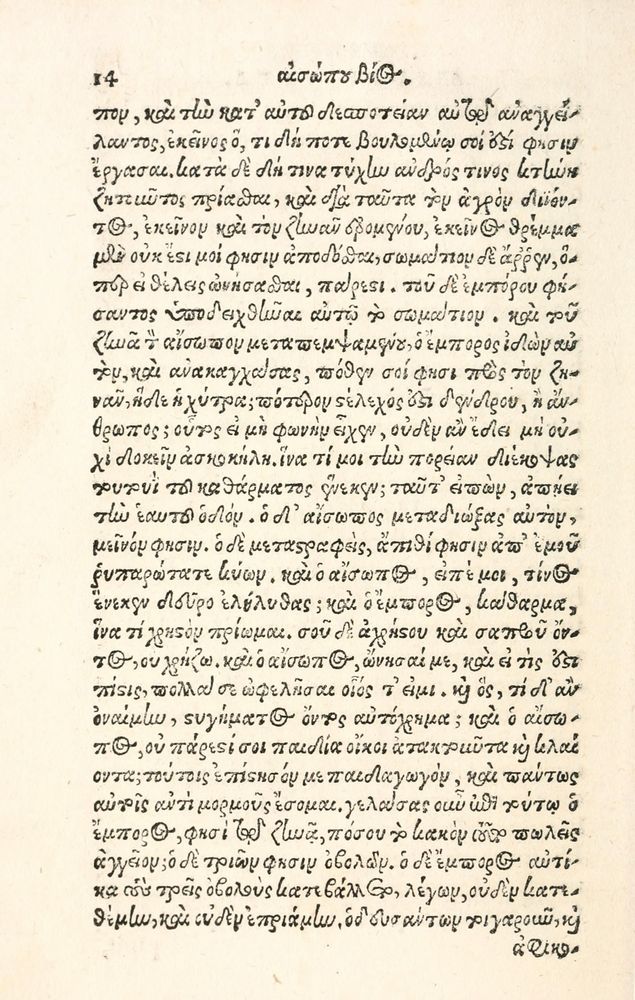 14 αἰσώπου βίος.
που, καὶ τὴν κατ' αὐτοῦ δεσποτείαν αὐτῷ ἀναγγεί-
λαντος, ἐκεῖνος ὅ, τι δήποτε βουλομένῳ σοί ἐστί φησιν
ἔργασαι. κατὰ δὲ δή τινα τύχην ἀνδρός τινος κτήνη
ζητοῦντος πρίασθαι, καὶ διὰ ταῦτα τὸν ἀγρὸν διϊόν-
τος, ἐκεῖνον καὶ τὸν ζηνᾶν ἐρομένου, ἐκεῖνος θρέμμα
μὲν οὐκ ἔστι μοί φησιν ἀποδόσθαι, σωμάτιον δὲ ἄρρεν, ὅ-
περ εἰ θέλεις ὠνήσασθαι, πάρεστι. τοῦ δὲ ἐμπόρου φή-
σαντος ὑποδειχθῆναι αὐτῷ τὸ σωμάτιον. καὶ τοῦ
ζηνᾶ τὸν αἴσωπον μεταπεμψαμένου, ὁ ἔμπορος ἰδὼν αὐ
τὸν, καὶ ἀνακαγχάσας, πόθεν σοί φησι πρὸς τὸν ζη-
νᾶν, ἥδε ἡ χύτρα; πότερον στέλεχός ἐστι δένδρου, ἢ ἄν-
θρωπος; οὗτος εἰ μὴ φωνὴν εἶχεν, οὐδὲν ἂν ἔδει μὴ οὐ-
χὶ δοκεῖν ἀσκοκήλη. ἵνα τί μοι τὴν πορείαν διέκοψας
τουτουῒ τοῦ καθάρματος ἕνεκεν; ταῦτ' εἰπὼν, ἀπῄει
τὴν ἑαυτοῦ ὁδόν. ὁ δ' αἴσωπος μεταδιώξας αὐτὸν,
μεῖνόν φησιν. ὁ δὲ μεταστραφεὶς, ἄπιθί φησιν ἀπ' ἐμοῦ
ῥυπαρώτατε κύων. καὶ ὁ αἴσωπος, εἰπέ μοι, τίνος
ἕνεκεν δεῦρο ἐλήλυθας; καὶ ὁ ἔμπορος, κάθαρμα,
ἵνα τί χρηστὸν πρίωμαι. σοῦ δὲ ἀχρήστου καὶ σαπροῦ ὄν-
τος, οὐ χρῄζω. καὶ ὁ αἴσωπος, ὤνησαί με, καὶ εἴ τίς ἐστι
πίστις, πολλά σε ὠφελῆσαι οἷός τ' εἰμι. καὶ ὃς, τί δ' ἂν
ὀναίμην, στυγήματος ὄντος αὐτόχρημα; καὶ ὁ αἴσω-
πος, οὐ πάρεστί σοι παιδία οἴκοι ἀτακτοῦντα καὶ κλαί
οντα; τούτοις ἐπίστησόν με παιδαγωγὸν, καὶ πάντως
αὐτοῖς ἀντὶ μορμοῦς ἔσομαι. γελάσας οὖν ἐπὶ τούτῳ ὁ
ἔμπορος, φησὶ τῷ ζηνᾷ, πόσου τὸ κακὸν τοῦτο πωλεῖς
ἀγγεῖον; ὁ δὲ τριῶν φησιν ὀβολῶν. ὁ δὲ ἔμπορος αὐτί-
κα τοὺς τρεῖς ὀβολοὺς κατέβαλλεν, λέγων, οὐδὲν κατε-
θέμην, καὶ οὐδὲν ἐπριάμην. ὁδευσάντων τοιγαροῦν, καὶ
ἀφικο-